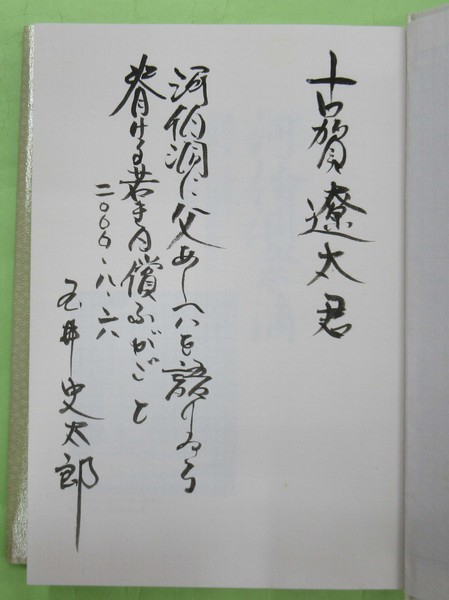 古賀遼太君
河伯洞に父あしへいを語りゐる
脊ける若き日償ふがごと
二〇〇六・八・二六
玉井史太郎